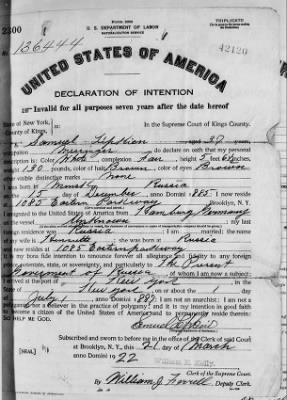 TRIPLICATE
U. S. DEPARTMENT OF LABOR
NATURALIZATION SERVICE
No. 136444
42120
UNITED STATES OF AMERICA
DECLARATION OF INTENTION
Invalid for all purposes seven years after the date hereof
State of New York,
County of Kings,
In the Supreme Court of Kings County.
I, Samuel aged
occupation do declare on oath that my personal
description is: Color White, complexion Fair, height 5 feet inches,
weight 130 pounds, color of hair Brown, color of eyes Brown
other visible distinctive marks None
I was born in Minsk Russia
on the 15 day of December, anno Domini 1885; I now reside
at 1085 Eastern Parkway Brooklyn, N. Y.
I emigrated to the United States of America from Hamburg Germany
on the vessel Unknown; my last
foreign residence was Russia; I am married; the name
of my wife is Henrietta; she was born at Russia
and now resides at 1085 Eastern Parkway
It is my bona fide intention to renounce forever all allegiance and fidelity to any foreign
prince, potentate, state, or sovereignty, and particularly to The Present
Government of Russia, of whom I am now a subject;
I arrived at the port of New York, in the
State of New York, on or about the 1 day
of July, anno Domini 1887; I am not an anarchist; I am not a
polygamist nor a believer in the practice of polygamy; and it is my intention in good faith
to become a citizen of the United States of America and to permanently reside therein:
SO HELP ME GOD.
Subscribed and sworn to before me in the office of the Clerk of said Court
at Brooklyn, N. Y., this 21 day of March
anno Domini 1922
[SEAL]
William E. Kelly
Clerk of the Supreme Court.
By William J. Deputy Clerk.